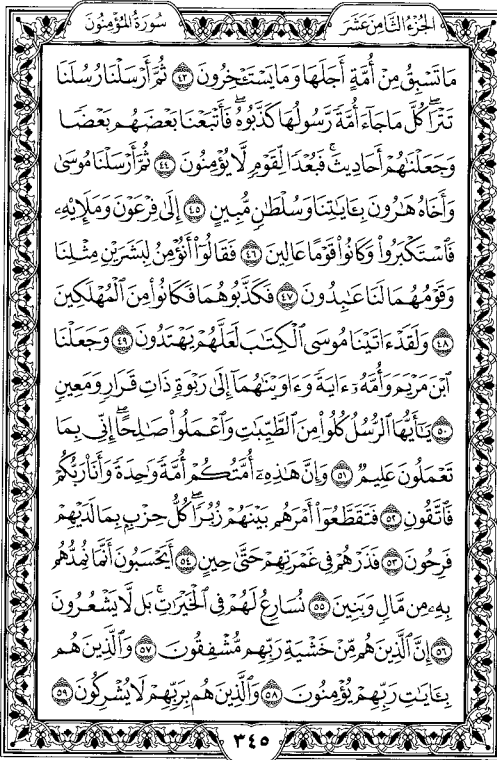 الجزء الثامن عشر
سورة المؤمنون
مَا تَسْبِقُ مِنْ أُمَّةٍ أَجَلَهَا وَمَا يَسْتَـْٔخِرُونَ ٤٣ ثُمَّ أَرْسَلْنَا رُسُلَنَا
تَتْرَا ۖ كُلَّ مَا جَآءَ أُمَّةً رَّسُولُهَا كَذَّبُوهُ ۚ فَأَتْبَعْنَا بَعْضَهُم بَعْضًا
وَجَعَلْنَـٰهُمْ أَحَادِيثَ ۚ فَبُعْدًا لِّقَوْمٍ لَّا يُؤْمِنُونَ ٤٤ ثُمَّ أَرْسَلْنَا مُوسَىٰ
وَأَخَاهُ هَـٰرُونَ بِـَٔايَـٰتِنَا وَسُلْطَـٰنٍ مُّبِينٍ ٤٥ إِلَىٰ فِرْعَوْنَ وَمَلَإِي۟هِۦ
فَٱسْتَكْبَرُوا۟ وَكَانُوا۟ قَوْمًا عَالِينَ ٤٦ فَقَالُوٓا۟ أَنُؤْمِنُ لِبَشَرَيْنِ مِثْلِنَا
وَقَوْمُهُمَا لَنَا عَـٰبِدُونَ ٤٧ فَكَذَّبُوهُمَا فَكَانُوا۟ مِنَ ٱلْمُهْلَكِينَ
٤٨ وَلَقَدْ ءَاتَيْنَا مُوسَى ٱلْكِتَـٰبَ لَعَلَّهُمْ يَهْتَدُونَ ٤٩ وَجَعَلْنَا
ٱبْنَ مَرْيَمَ وَأُمَّهُۥٓ ءَايَةً وَءَاوَيْنَـٰهُمَآ إِلَىٰ رَبْوَةٍ ذَاتِ قَرَارٍ وَمَعِينٍ
٥٠ يَـٰٓأَيُّهَا ٱلرُّسُلُ كُلُوا۟ مِنَ ٱلطَّيِّبَـٰتِ وَٱعْمَلُوا۟ صَـٰلِحًا ۖ إِنِّى بِمَا
تَعْمَلُونَ عَلِيمٌ ٥١ وَإِنَّ هَـٰذِهِۦٓ أُمَّتُكُمْ أُمَّةً وَٰحِدَةً وَأَنَا۠ رَبُّكُمْ
فَٱتَّقُونِ ٥٢ فَتَقَطَّعُوٓا۟ أَمْرَهُم بَيْنَهُمْ زُبُرًا ۖ كُلُّ حِزْبٍۭ بِمَا لَدَيْهِمْ
فَرِحُونَ ٥٣ فَذَرْهُمْ فِى غَمْرَتِهِمْ حَتَّىٰ حِينٍ ٥٤ أَيَحْسَبُونَ أَنَّمَا نُمِدُّهُم
بِهِۦ مِن مَّالٍ وَبَنِينَ ٥٥ نُسَارِعُ لَهُمْ فِى ٱلْخَيْرَٰتِ ۚ بَل لَّا يَشْعُرُونَ
٥٦ إِنَّ ٱلَّذِينَ هُم مِّنْ خَشْيَةِ رَبِّهِم مُّشْفِقُونَ ٥٧ وَٱلَّذِينَ هُم
بِـَٔايَـٰتِ رَبِّهِمْ يُؤْمِنُونَ ٥٨ وَٱلَّذِينَ هُم بِرَبِّهِمْ لَا يُشْرِكُونَ ٥٩
٣٤٥